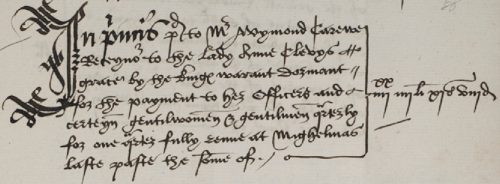 In primis pd to Mr Wymond Carewe
Receyvor to the lady Anne Clevys
grace by the kings warant dormant
for the payment to her Officers and
certeyn gentilwomen & gentilmen qrterly
for one qrter fully venne at Mighelmas
laste paste the some of.
xx
iiij iiij li xjs viijd